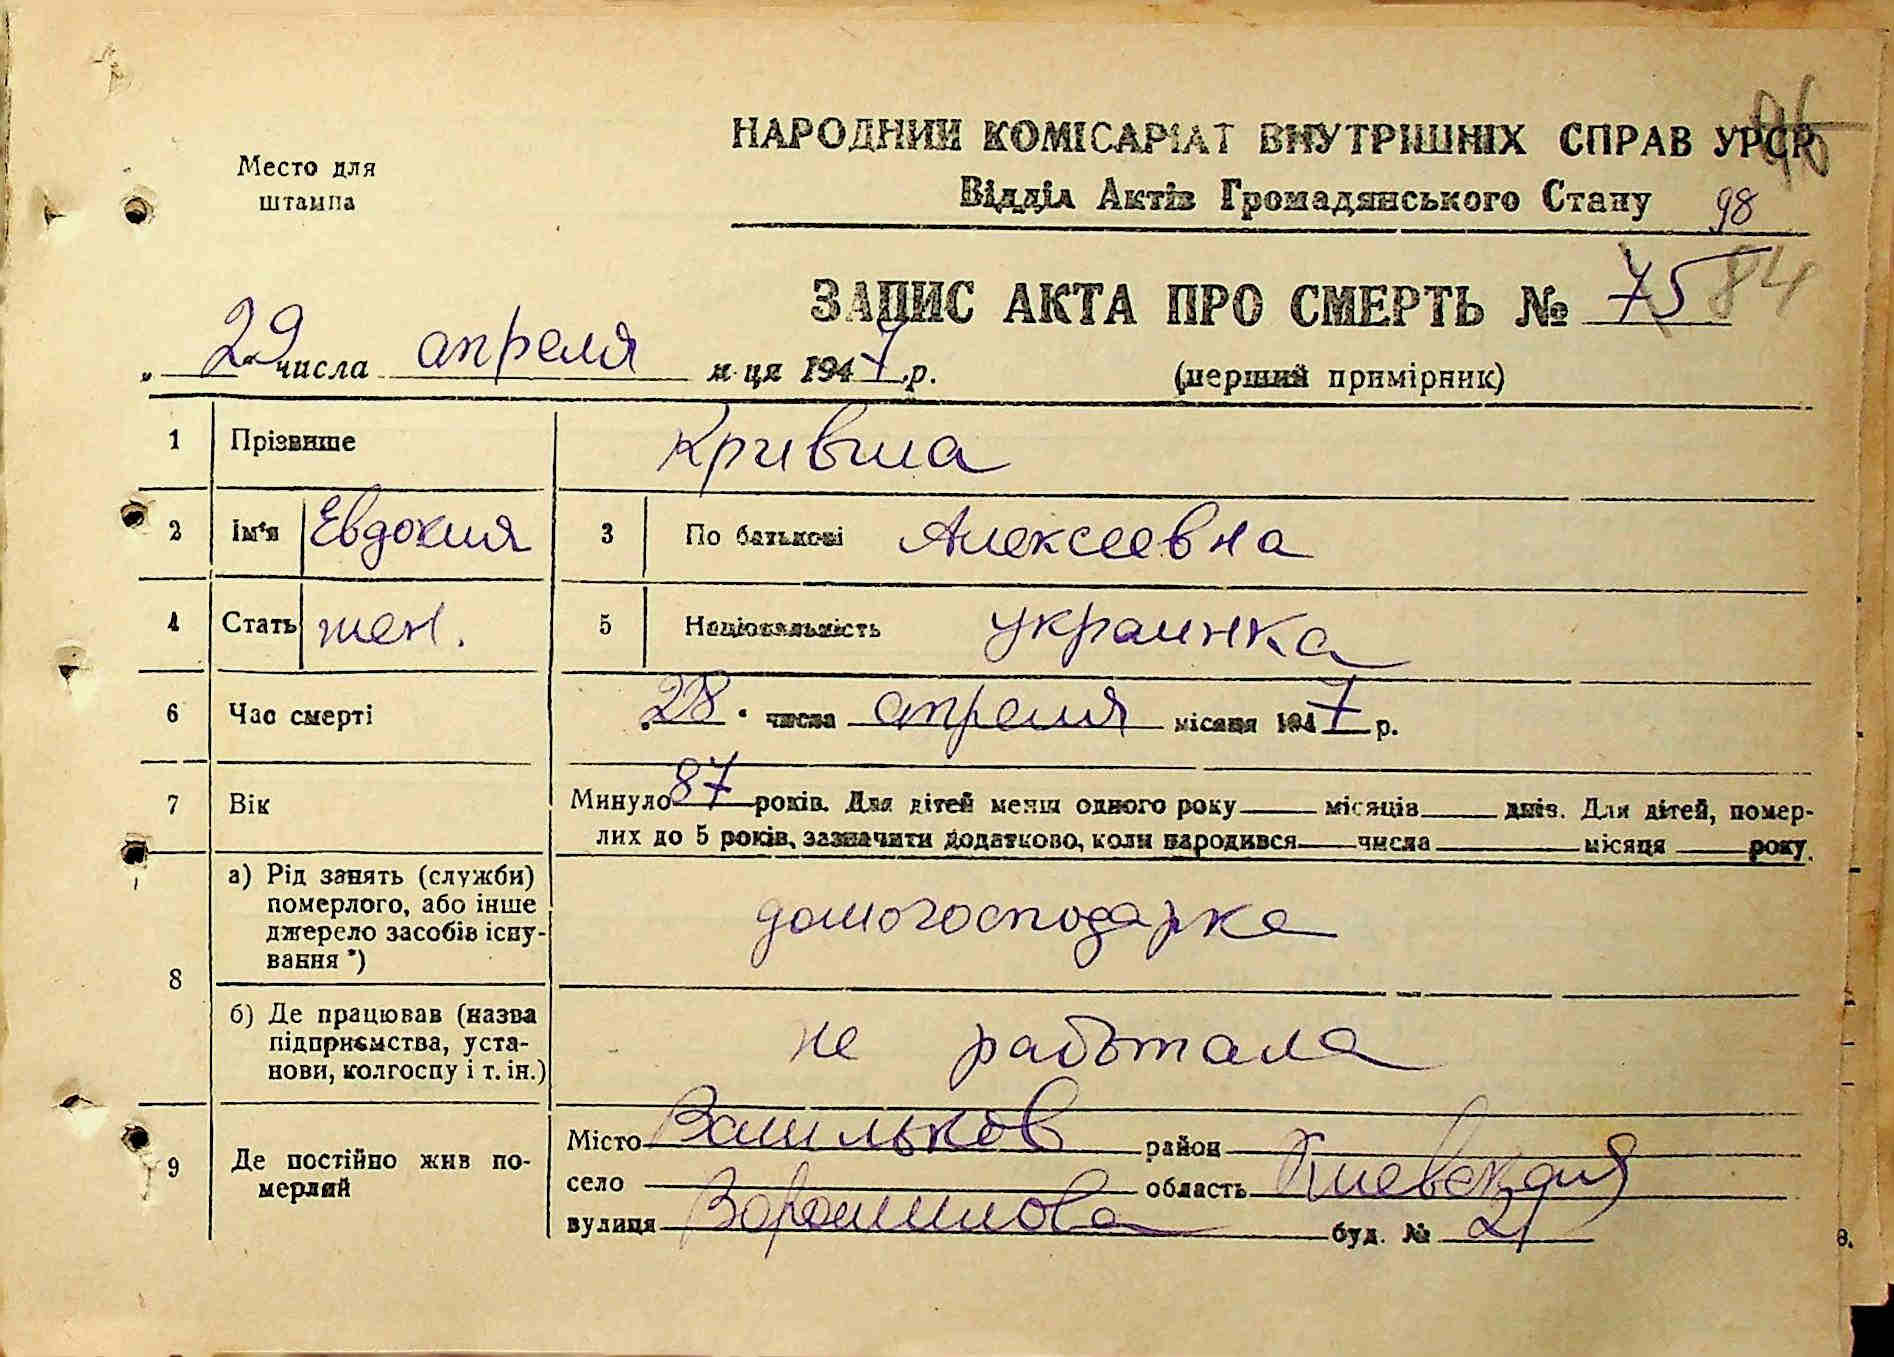 96
Место для
штампа
НАРОДНИЙ КОМІСАРІАТ ВНУТРІШНІХ СПРАВ УРСР
Відділ Актів Громадянського Стану 98
ЗАПИС АКТА ПРО СМЕРТЬ № 75 84
„29“ числа апреля м-ця 1947 р. (перший примірник)
1 Прізвище
2 Ім'я Евдокия 3 По батькові Алексеевна
4 Стать жен. 5 Національність украинка
6 Час смерті „28“ числа апреля місяця 1947 р.
7 Вік Минуло 87 років. Для дітей менш одного року місяців днів. Для дітей, помер-
лих до 5 років, зазначити додатково, коли народився числа місяця року.
8 а) Рід занять (служби)
померлого, або інше
джерело засобів існу-
вання *)
домогосподарка
б) Де працював (назва
підприємства, уста-
нови, колгоспу і т. ін.)
не работала
9 Де постійно жив по-
мерлий
Місто Васильков район
село область Киевская
вулиця Ворошилова буд. № 21
в.